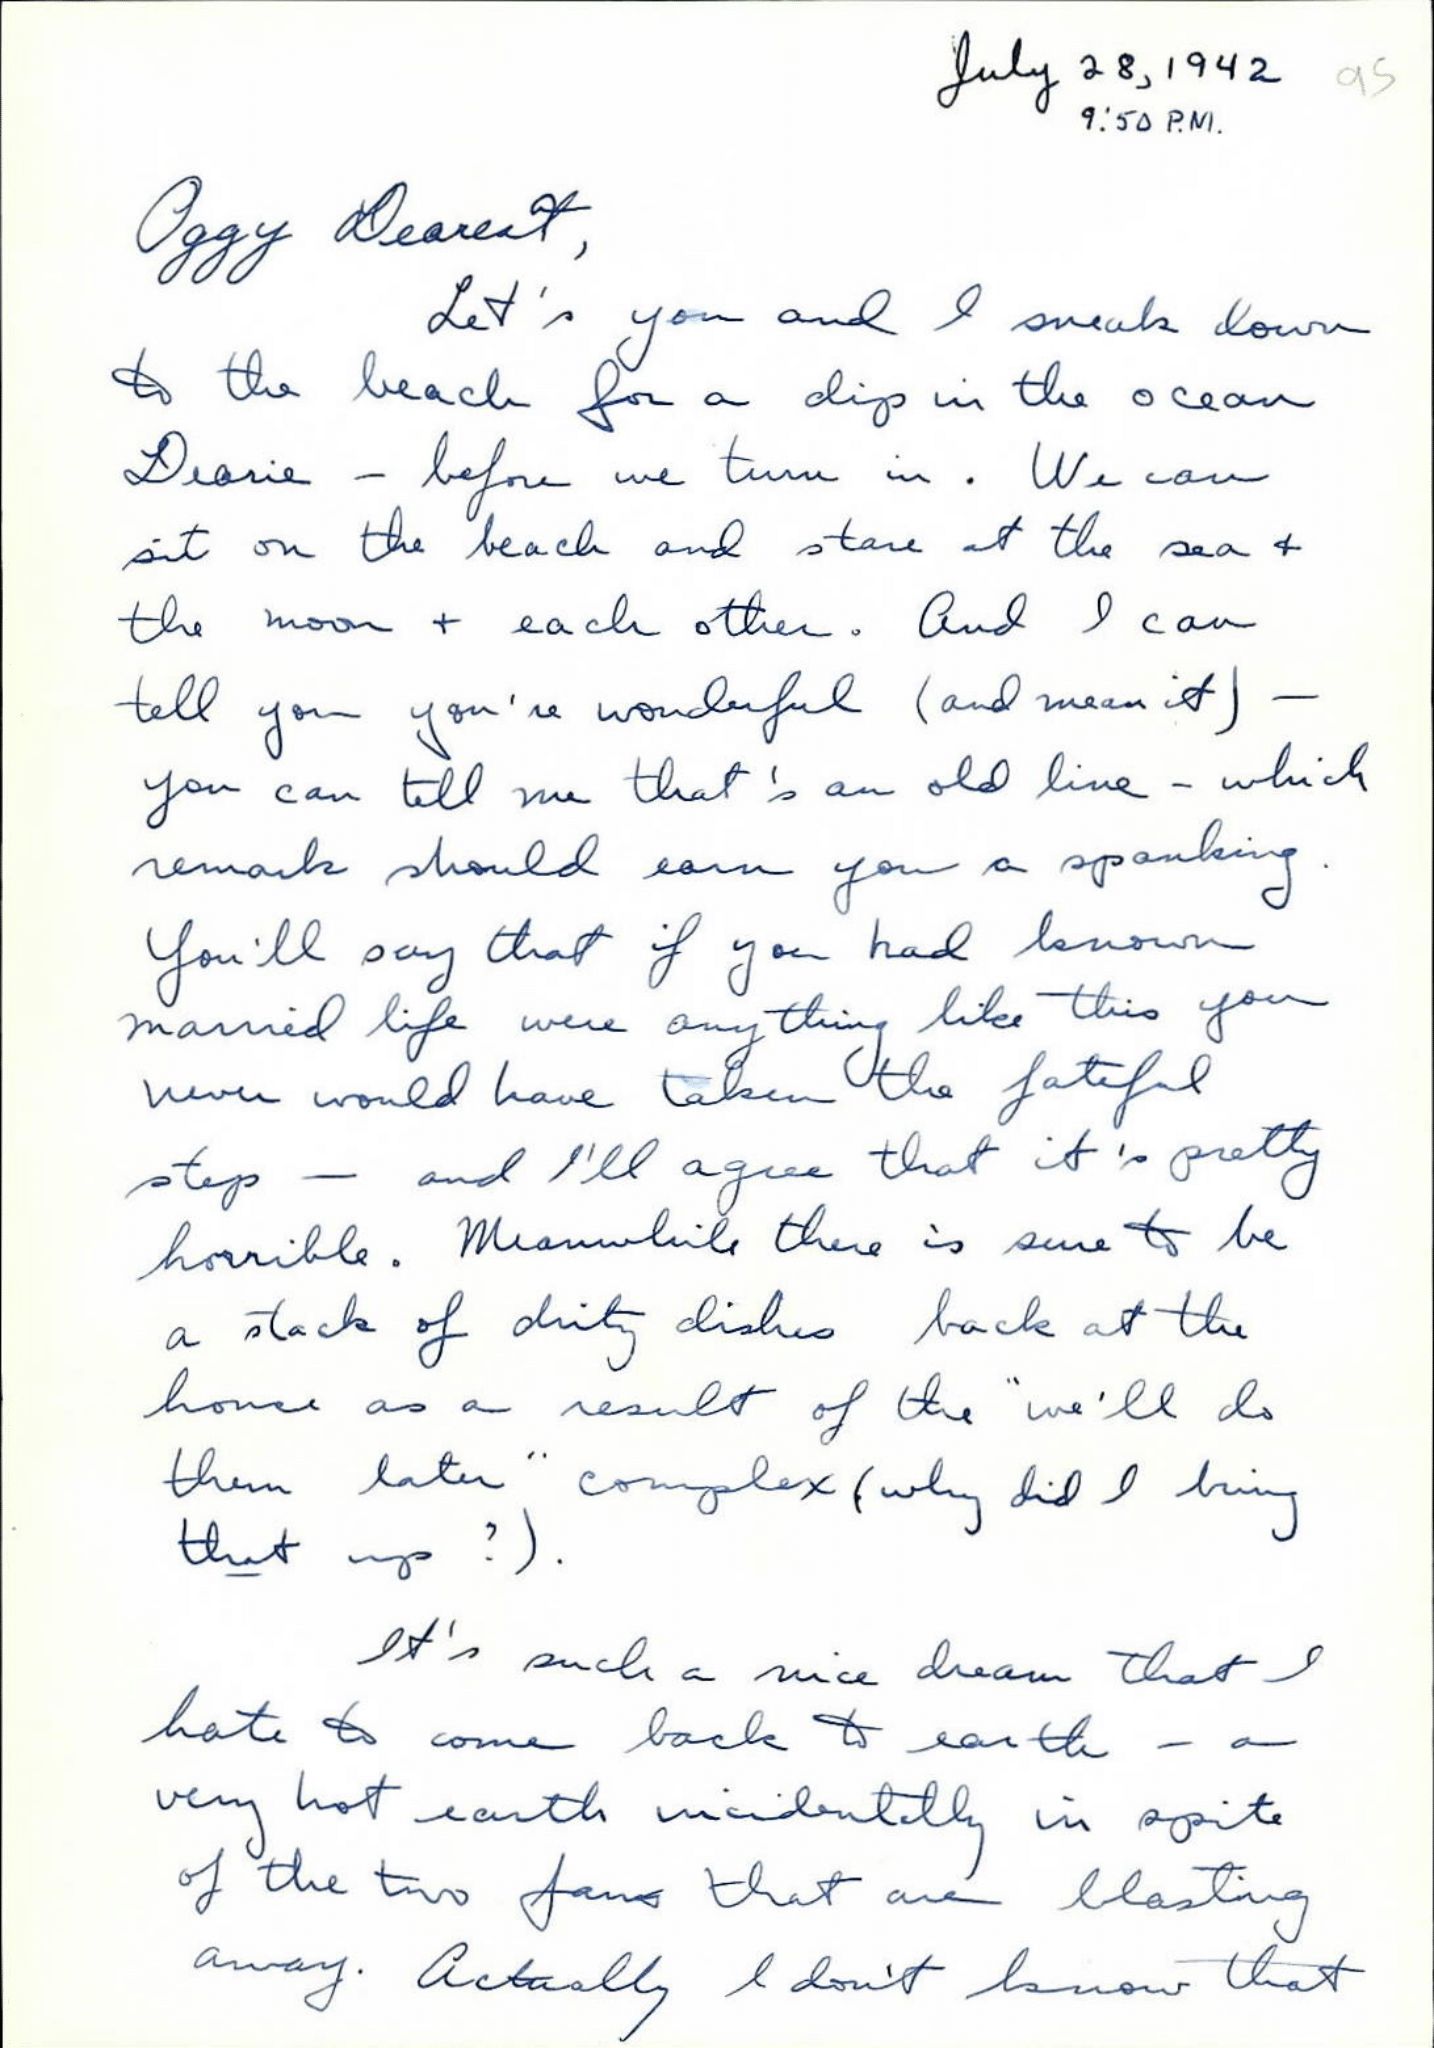 July 28, 1942 95
9:50 P.M.
Oggy Dearest,
Let's you and I sneak down
to the beach for a dip in the ocean
Dearie – before we turn in. We can
sit on the beach and stare at the sea +
the moon + each other. And I can
tell you you're wonderful (and mean it) –
you can tell me that's an old line – which
remark should earn you a spanking.
You'll say that if you had known
married life were anything like this you
never would have taken the fateful
step – and I'll agree that it's pretty
horrible. Meanwhile there is sure to be
a stack of dirty dishes back at the
house as a result of the "we'll do
them later" complex (why did I bring
that up?).
It's such a nice dream that I
hate to come back to earth – a
very hot earth incidentally in spite
of the two fans that are blasting
away. Actually I don't know that